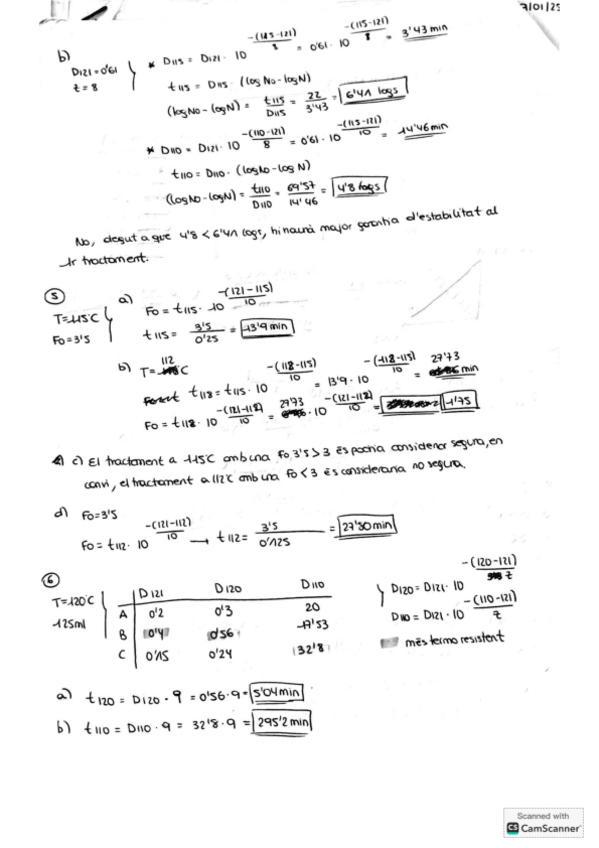 7/01/25
b)
D121 = 0'61
z = 8
* D115 = D121 · 10^(-(115-121)/8) = 0'61 · 10^(-(115-121)/8) = 3'43 min
t115 = D115 · (log No - log N)
(log No - log N) = t115/D115 = 22/3'43 = 6'41 logs
* D110 = D121 · 10^(-(110-121)/8) = 0'61 · 10^(-(115-121)/10) = 14'46 min
t110 = D110 · (log No - log N)
(log No - log N) = t110/D110 = 69'57/14'46 = 4'8 logs
No, degut a que 4'8 < 6'41 logs, hi haurà major garantia d'estabilitat al
1r tractament.
5
T = 115°C
Fo = 3'5
a) Fo = t115 · 10^(-(121-115)/10)
t115 = 3'5/0'25 = 13'9 min
b) T = 112 °C
t118 = t115 · 10^(-(118-115)/10) = 13'9 · 10^(-(118-115)/10) = 27'73 min
Fo = t118 · 10^(-(121-112)/10) = 27'73 · 10^(-(121-112)/10) = 1'75
c) El tractament a 115°C amb una Fo, 3'5 > 3 és podria considerar segura, en
canvi, el tractament a 112°C amb una Fo < 3 és consideraria no segura.
d) Fo = 3'5
Fo = t112 · 10^(-(121-112)/10) → t112 = 3'5/0'125 = 27'80 min
6
T = 120°C
125ml
D121 D120 D110
A 0'2 0'3 20
B 0'4 0'56 17'53
C 0'15 0'24 32'8
D120 = D121 · 10^(-(120-121)/z)
D110 = D121 · 10^(-(110-121)/z)
més termo resistent
a) t120 = D120 · 9 = 0'56 · 9 = 5'04 min
b) t110 = D110 · 9 = 32'8 · 9 = 295'2 min
Scanned with
CS CamScanner